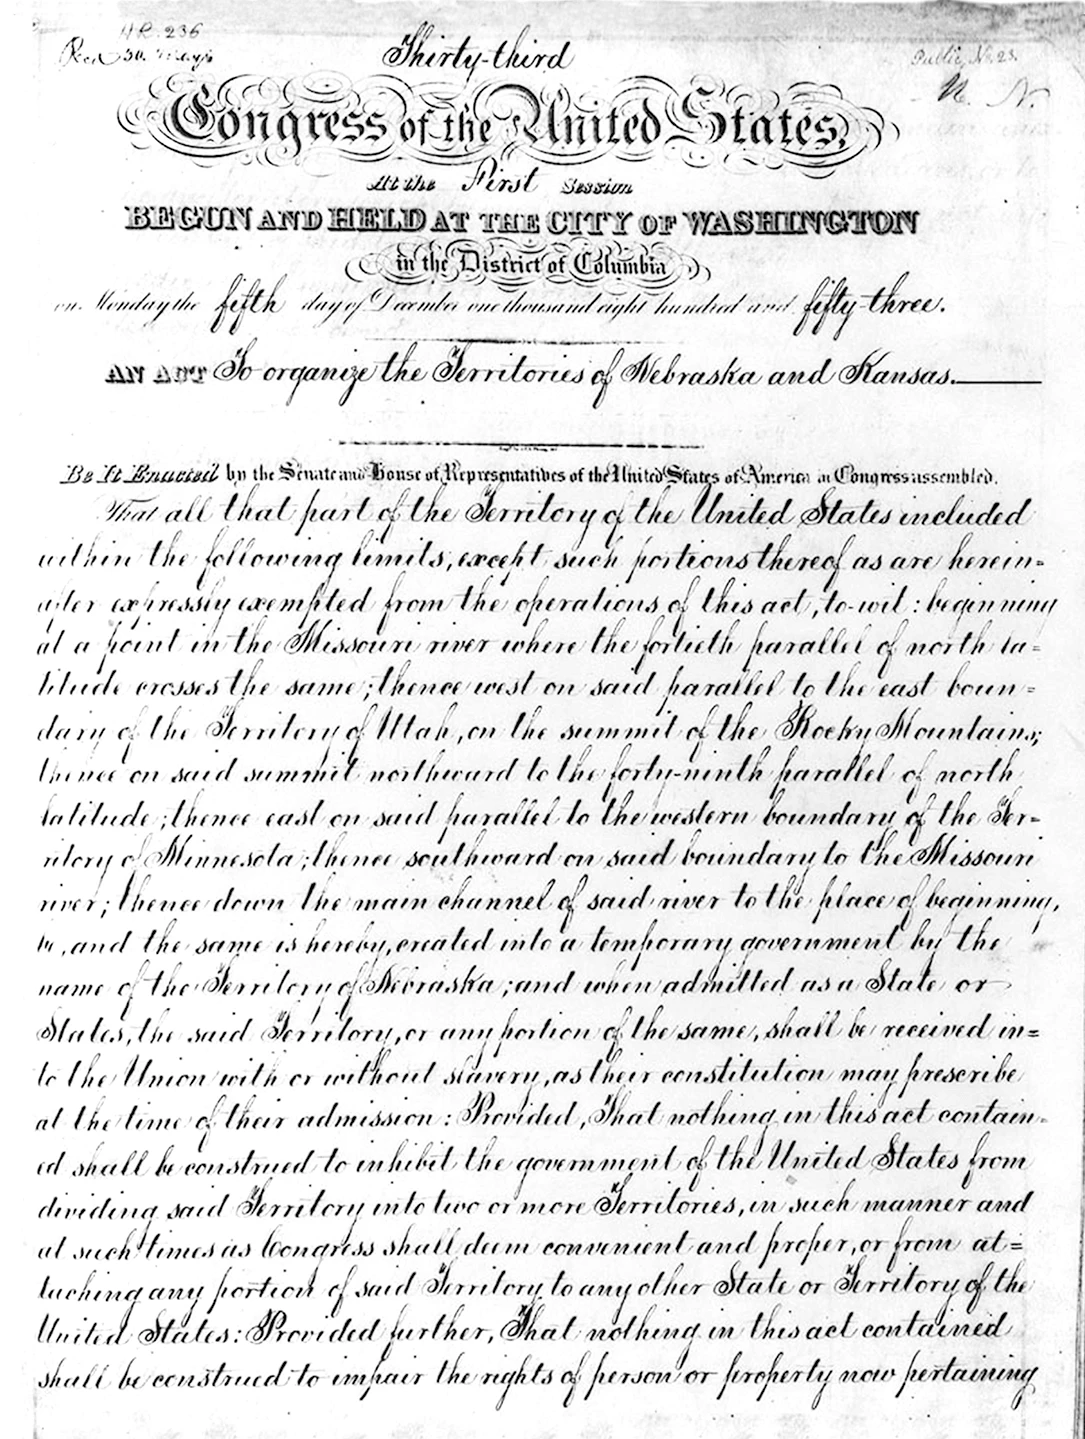 H.R. 236
Rec'd 30. May
Public, No. 23.
N. N.
Thirty-third
Congress of the United States,
At the First Session
BEGUN AND HELD AT THE CITY OF WASHINGTON
in the District of Columbia
on Monday the fifth day of December one thousand eight hundred and fifty-three.
AN ACT To organize the Territories of Nebraska and Kansas.
Be It Enacted by the Senate and House of Representatives of the United States of America in Congress assembled.
That all that part of the Territory of the United States included
within the following limits, except such portions thereof as are herein=
after expressly exempted from the operations of this act, to-wit: beginning
at a point in the Missouri river where the fortieth parallel of north la=
titude crosses the same; thence west on said parallel to the east boun=
dary of the Territory of Utah, on the summit of the Rocky Mountains;
thence on said summit northward to the forty-ninth parallel of north
latitude; thence east on said parallel to the western boundary of the Ter=
ritory of Minnesota; thence southward on said boundary to the Missouri
river; thence down the main channel of said river to the place of beginning,
be, and the same is hereby, created into a temporary government by the
name of the Territory of Nebraska; and when admitted as a State or
States, the said Territory, or any portion of the same, shall be received in=
to the Union with or without slavery, as their constitution may prescribe
at the time of their admission: Provided, That nothing in this act contain=
ed shall be construed to inhibit the government of the United States from
dividing said Territory into two or more Territories, in such manner and
at such times as Congress shall deem convenient and proper, or from at=
taching any portion of said Territory to any other State or Territory of the
United States: Provided further, That nothing in this act contained
shall be construed to impair the rights of person or property now pertaining